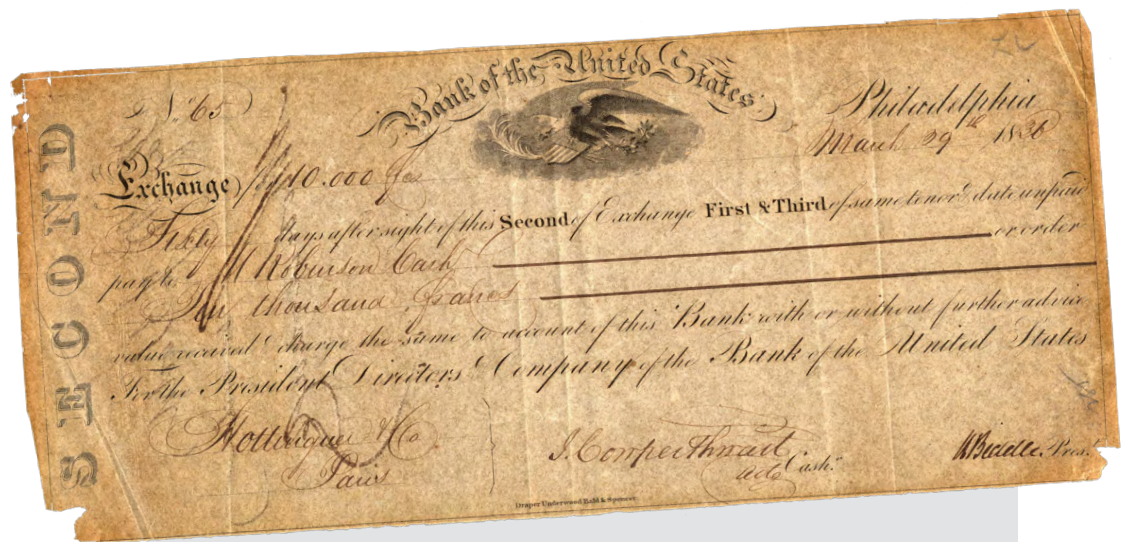 SECOND
No. 65
Bank of the United States
Philadelphia
March 29th 1836
Exchange for 10.000 fcs
Sixty days after sight of this Second of Exchange First & Third of same tenor & date unpaid
pay to M Robinson Cash or order
Ten thousand francs
value received & charge the same to account of this Bank with or without further advice
For the President Directors & Company of the Bank of the United States
Hottinguer & Co
Paris
J. Cowperthwait
actg Cashr.
N Biddle Prest.
Draper Underwood Bald & Spencer